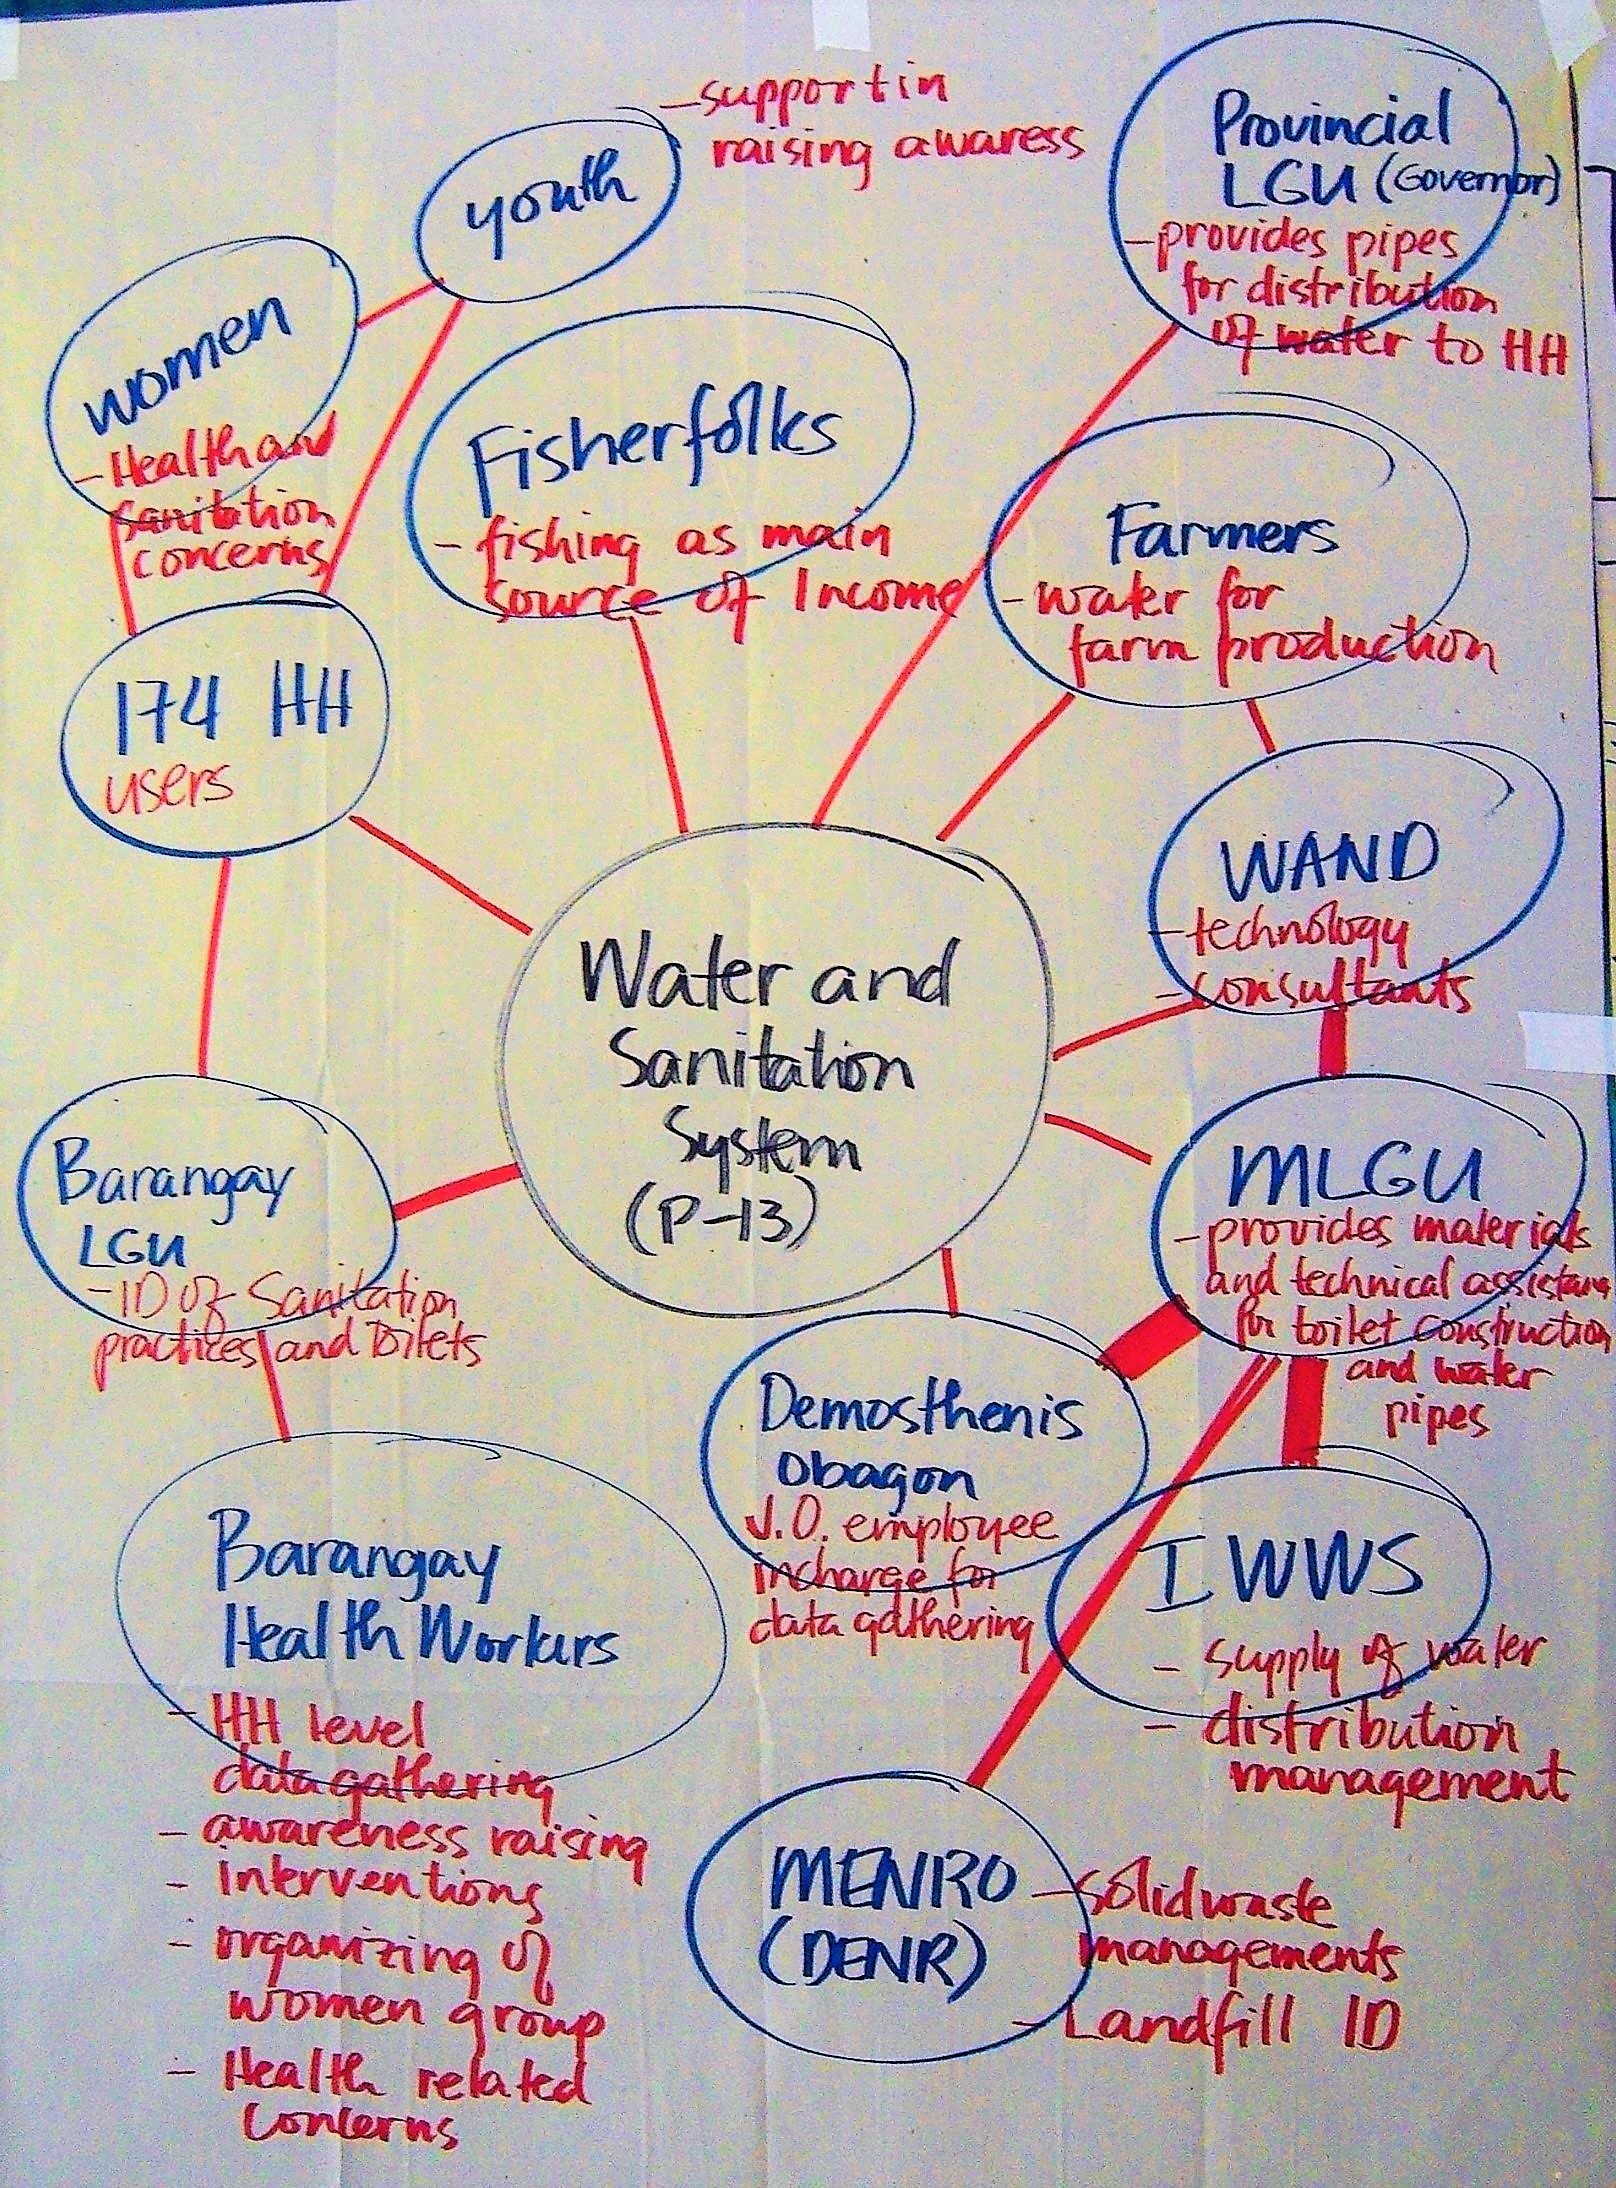 youth
-support in
raising awaress
Provincial
LGU (Governor)
-provides pipes
for distribution
of water to HH
women
-Health and
sanitation
concerns
Fisherfolks
- fishing as main
source of Income
Farmers
-water for
farm production
174 HH
users
WAND
-technology
-consultants
Water and
Sanitation
System
(P-13)
Barangay
LGU
-ID of Sanitation
practices and toilets
MLGU
-provides materials
and technical assistanc
for toilet construction
and water
pipes
Demosthenis
Obagon
J.O. employee
incharge for
data gathering
IWWS
- supply of water
- distribution
management
Barangay
Health Workers
- HH level
data gathering
- awareness raising
- Interventions
- organizing of
women group
- Health related
concerns
MENRO
(DENR)
-Solid waste
managements
-Landfill ID